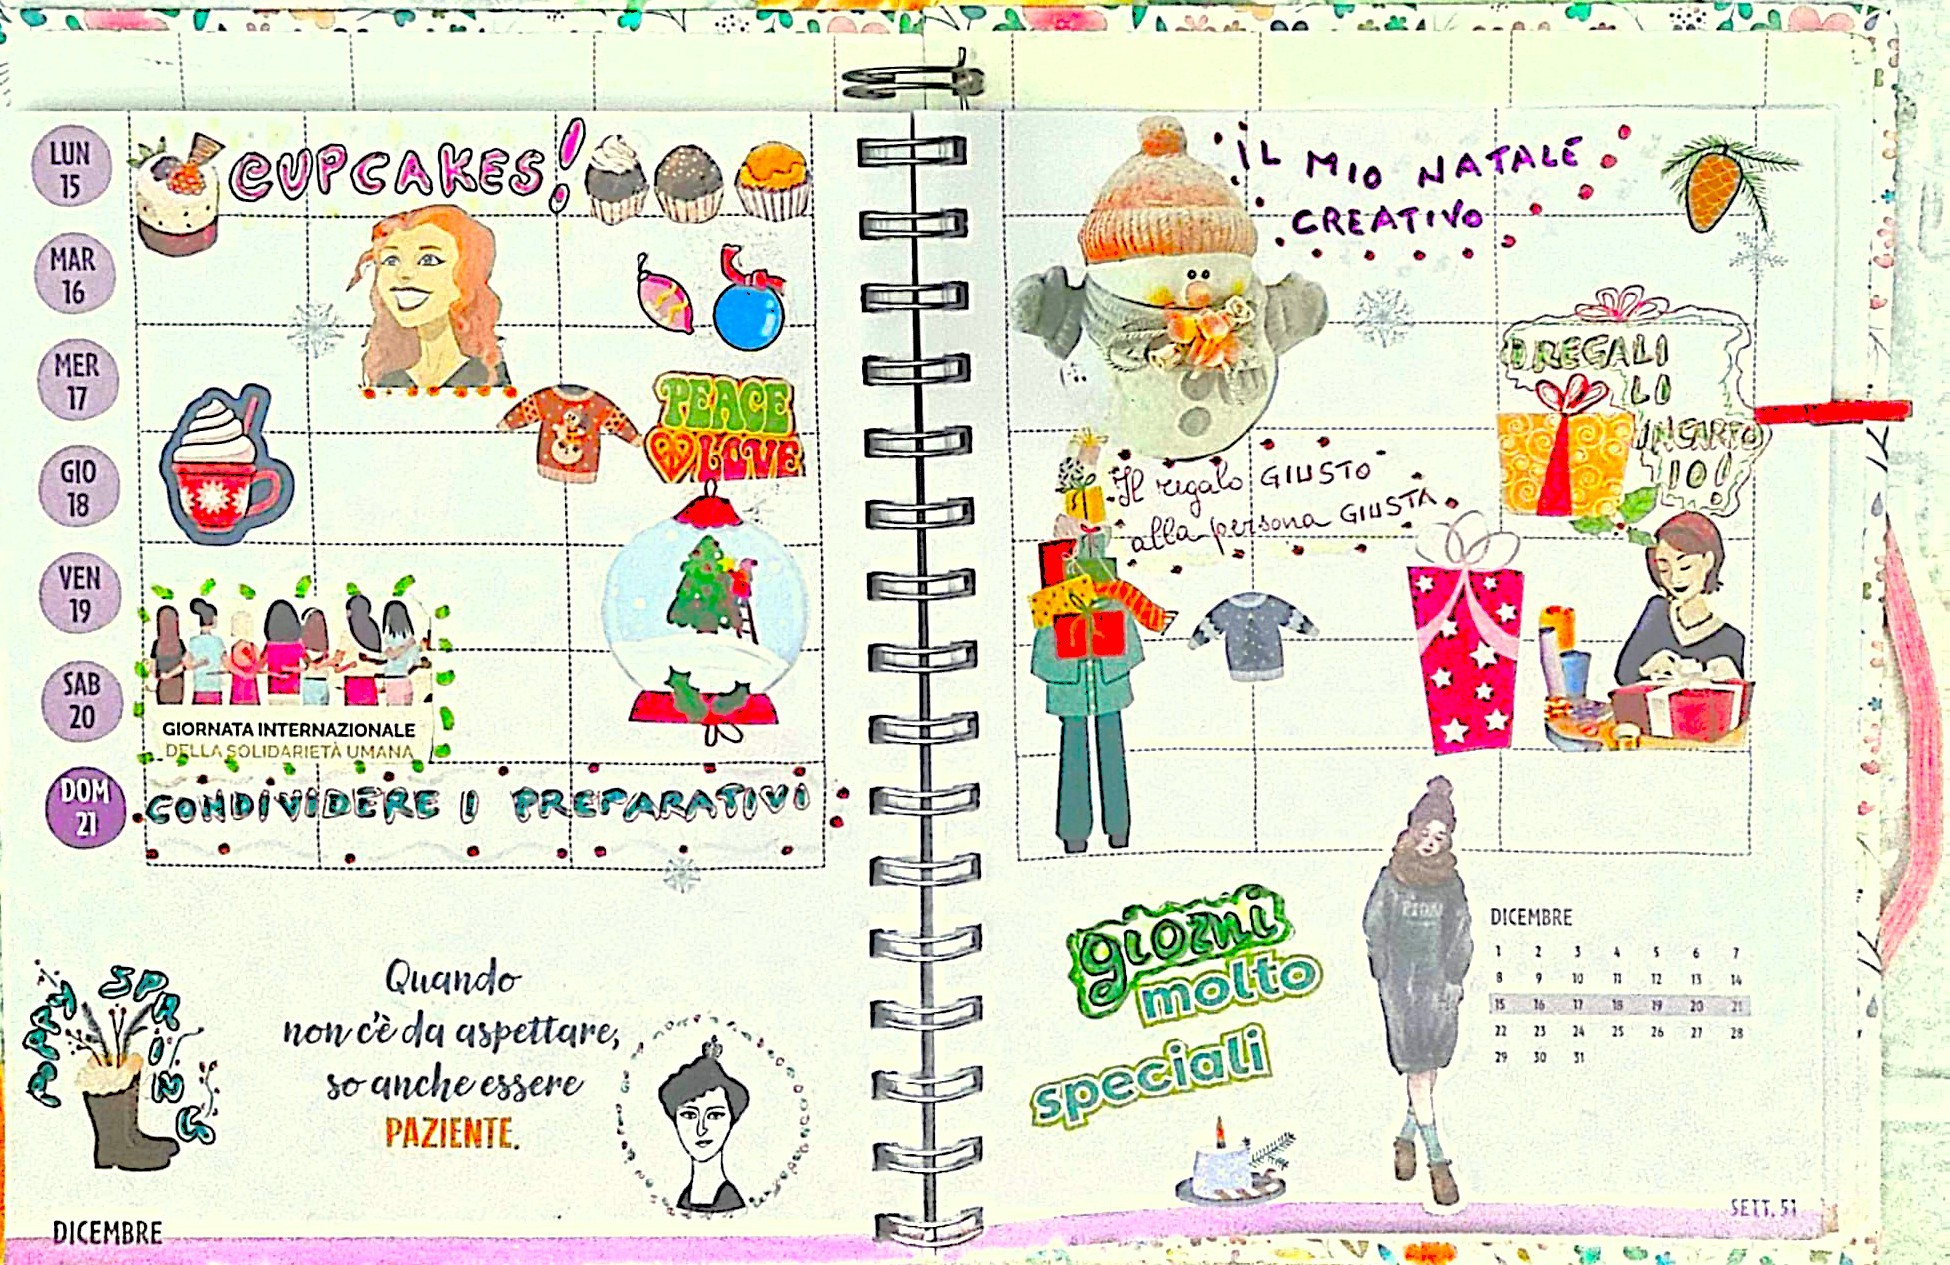 LUN
15
MAR
16
MER
17
GIO
18
VEN
19
SAB
20
DOM
21
CUPCAKES!
PEACE
LOVE
GIORNATA INTERNAZIONALE
DELLA SOLIDARIETÀ UMANA
CONDIVIDERE I PREPARATIVI
POPPY SPRING
Quando
non c'è da aspettare,
so anche essere
PAZIENTE.
DICEMBRE
IL MIO NATALE
CREATIVO
I REGALI
LI
INCARTO
IO!
Il regalo GIUSTO
alla persona GIUSTA
giorni
molto
speciali
DICEMBRE
1 2 3 4 5 6 7
8 9 10 11 12 13 14
15 16 17 18 19 20 21
22 23 24 25 26 27 28
29 30 31
SETT. 51